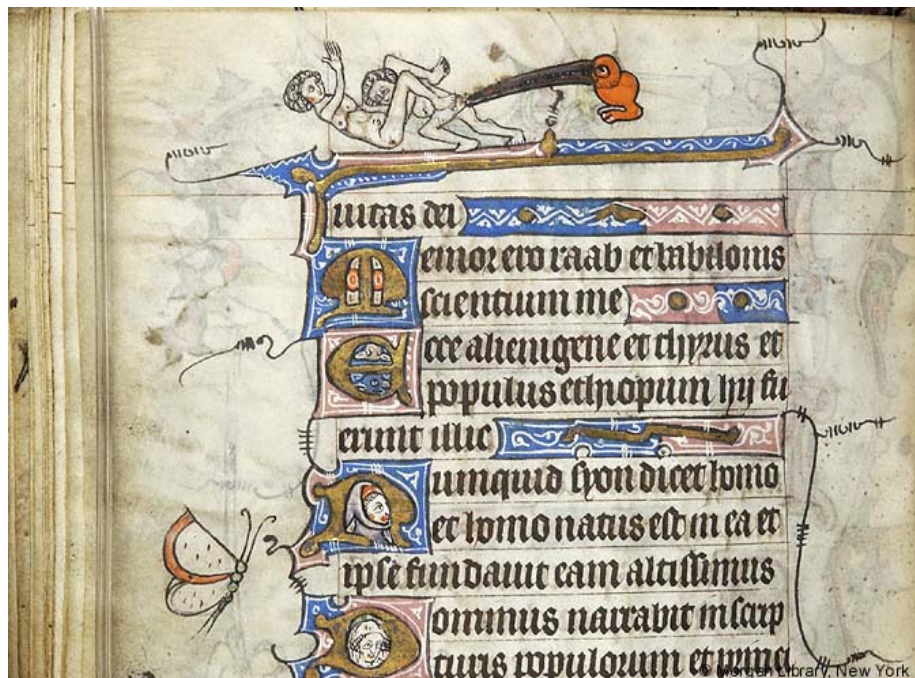 iuitas dei
Memor ero raab et babilonis
scientium me
Ecce alienigene et thyrus et
populus ethyopum hij fu
erunt illic
Numquid syon dicet homo
et homo natus est in ea et
ipse fundauit eam altissimus
Dominus narrabit in scrip
turis populorum et princi
© Morgan Library, New York